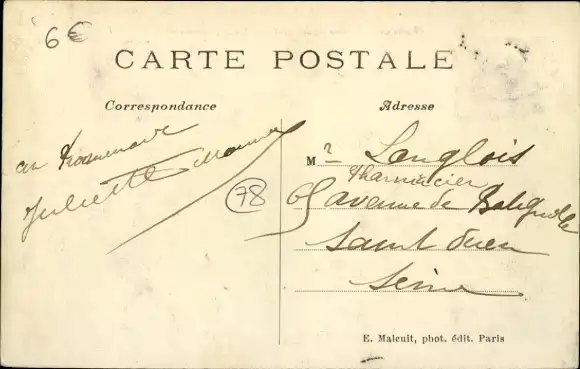 6€
CARTE POSTALE
Correspondance
Adresse
en Promenade
Juliette
78
Mr Langlois
Pharmacien
65 avenue de Batignolles
Saint Ouen
Seine
E. Malcuit, phot. édit. Paris